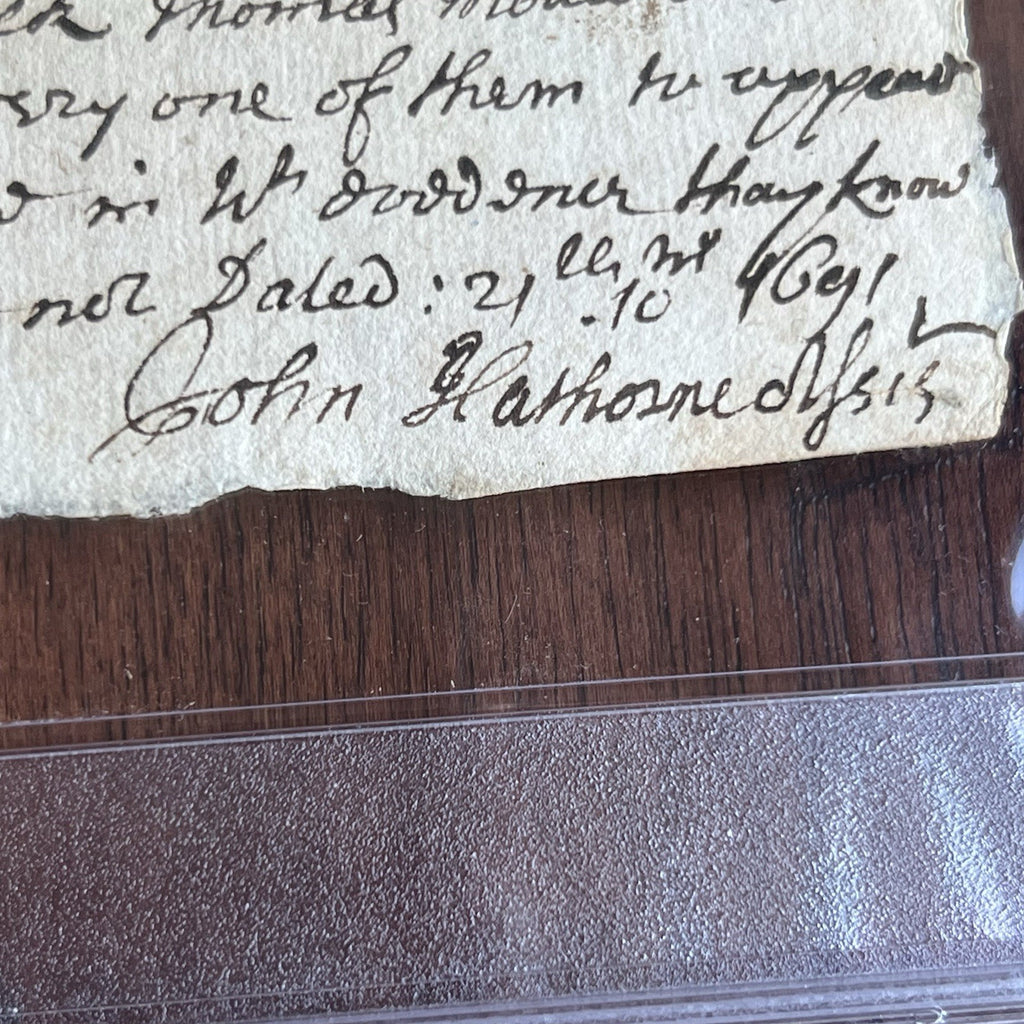 Thomas
very one of them to appear
in Wh evedence thay know
not Dated : 21 th . 10 mo 1691
John Hathorne Assis